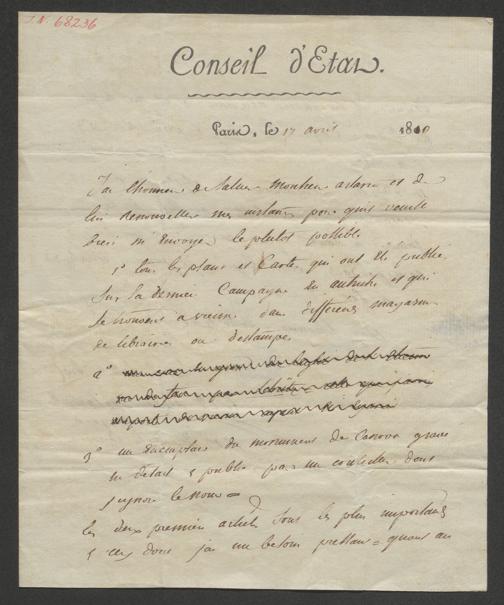 I.N. 68236
Conseil d'Etat.
Paris, le 17 avril 1810
J'ai l'honneur de saluer Monsieur artaria et de
lui renouveller mes instances pour qu'il veuille
bien m'envoyer le plutot possible
1° tous les plans et Cartes qui ont été publiés
sur la derniere Campagne en autriche et qui
se trouvent a vienne dans differens magasins
de libraires ou d'estampes
2°
3° un exemplaire du monument de Canova gravé
en detail & publié par un dont
j'ignore le nom =
les deux premiers articles sont les plus importants
& ceux dont j'ai un besoin pressant = quant au